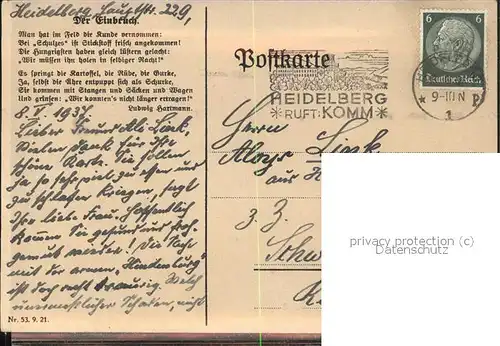 Heidelberg, Hauptstr. 229,
Der Einbruch.
Man hat im Feld die Kunde vernommen:
Bei „Schulzes“ ist Stickstoff frisch angekommen!
Die Hungrigsten haben gleich lüstern gedacht:
„Wir müssen ihn holen in selbiger Nacht!“
Es springt die Kartoffel, die Rübe, die Gurke,
Ja, selbst die Ähre entpuppt sich als Schurke,
Sie kommen mit Stangen und Säcken und Wagen
Und grinsen: „Wir konnten's nicht länger ertragen!“
Ludwig Hartmann.
8. V. 193
Lieber Link,
Vielen Dank für Ihre
schöne Karte. Sie sollen
ja so sehr viel zu essen und
zu schlafen kriegen, sagt
Ihre liebe Frau. Hoffentlich
kommen Sie gesund und froh-
gemut wieder! Die Sache
mit der armen „Hindenburg“
ist doch recht traurig. Welch
unermesslicher Schaden, nicht
Nr. 53. 9. 21.
Postkarte
HEIDELBERG
RUFT: KOMM
6 6
Deutsches Reich
9-10 N
1
Herrn
Aloys Link
aus
z. Z.
privacy protection (c)
Datenschutz